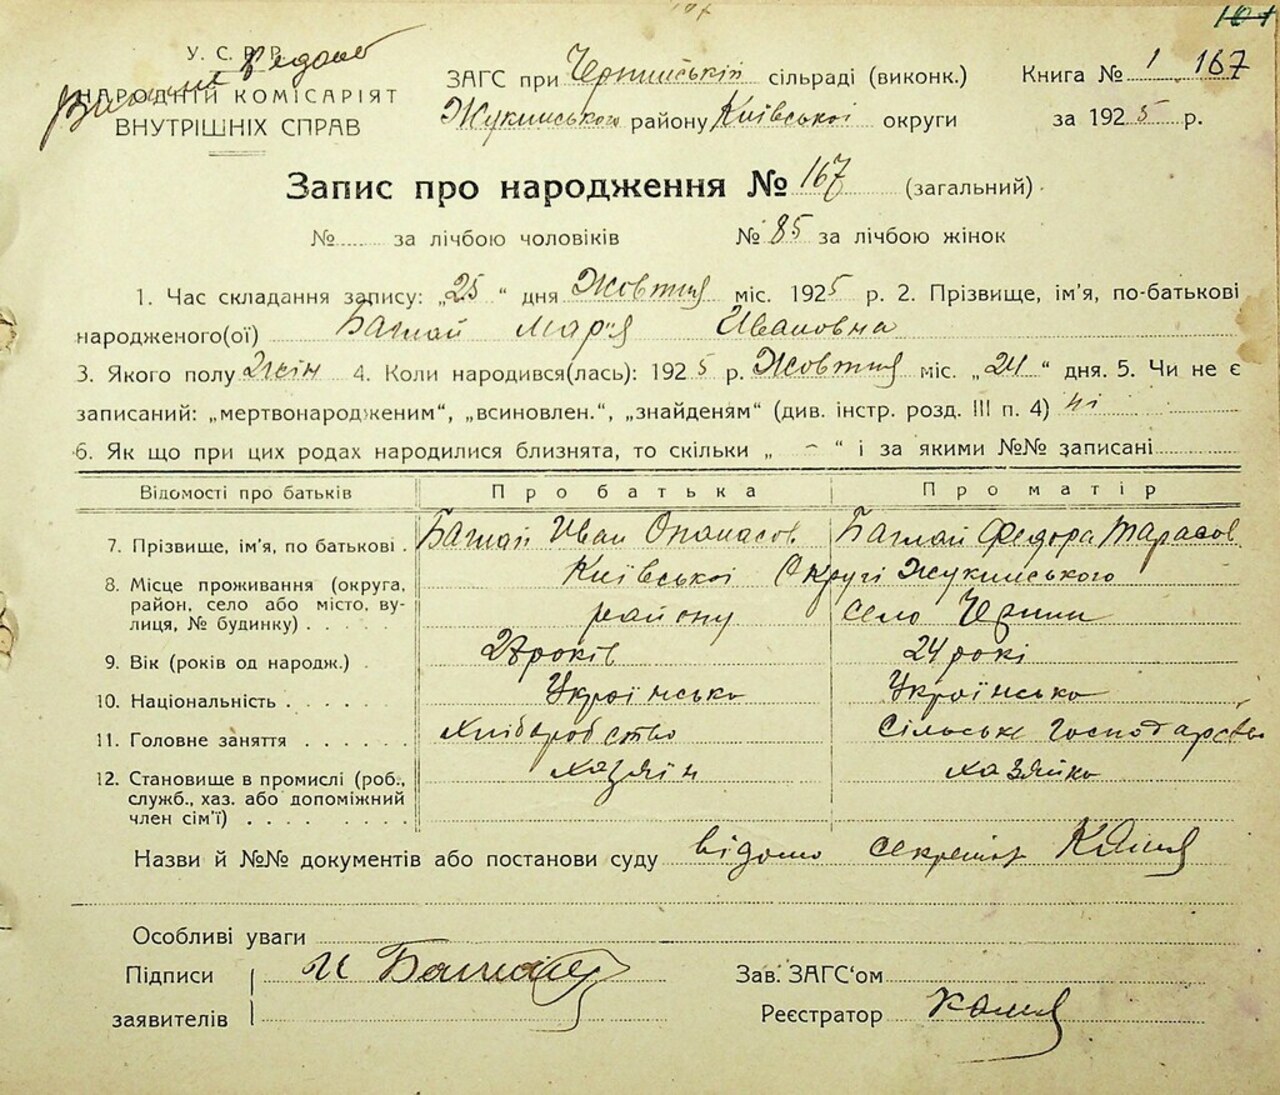 167 101
У. С. Р. Р.
НАРОДНІЙ КОМІСАРІЯТ
ВНУТРІШНІХ СПРАВ
ЗАГС при Чернинській сільраді (виконк.) Книга № 1 167
Жукинського району Київської округи за 1925 р.
Запис про народження № 167 (загальний)
№ за лічбою чоловіків № 85 за лічбою жінок
1. Час складання запису: „25 “ дня Жовтня міс. 1925 р. 2. Прізвище, ім'я, по-батькові
народженого(ої) Баглай Мар'я Ивановна
3. Якого полу Жін 4. Коли народився(лась): 1925 р. Жовтня міс. „24 “ дня. 5. Чи не є
записаний: „мертвонародженим“, „всиновлен.“, „знайденям“ (див. інстр. розд. III п. 4) ні
6. Як що при цих родах народилися близнята, то скільки „ – “ і за якими №№ записані
Відомості про батьків Про батька Про матір
7. Прізвище, ім'я, по батькові Баглай Иван Опанасов Баглай Федора Тарасов
8. Місце проживання (округа, Київської Округі Жукинського
район, село або місто, ву- району село Чернин
лиця, № будинку)
9. Вік (років од народж.) 27 років 24 рокі
10. Національність Українська Українська
11. Головне заняття Хліборобство Сільське Господарство
12. Становище в промислі (роб., хазяїн хазяйка
служб., хаз. або допоміжний
член сім'ї)
Назви й №№ документів або постанови суду відомо секретар
Особливі уваги
Підписи И Баглай Зав. ЗАГС'ом
заявителів Реєстратор